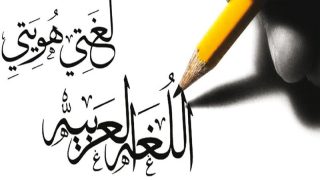 لُغَتِي هُوِيَّتِي
اللُغَة العَرَبِيَّة